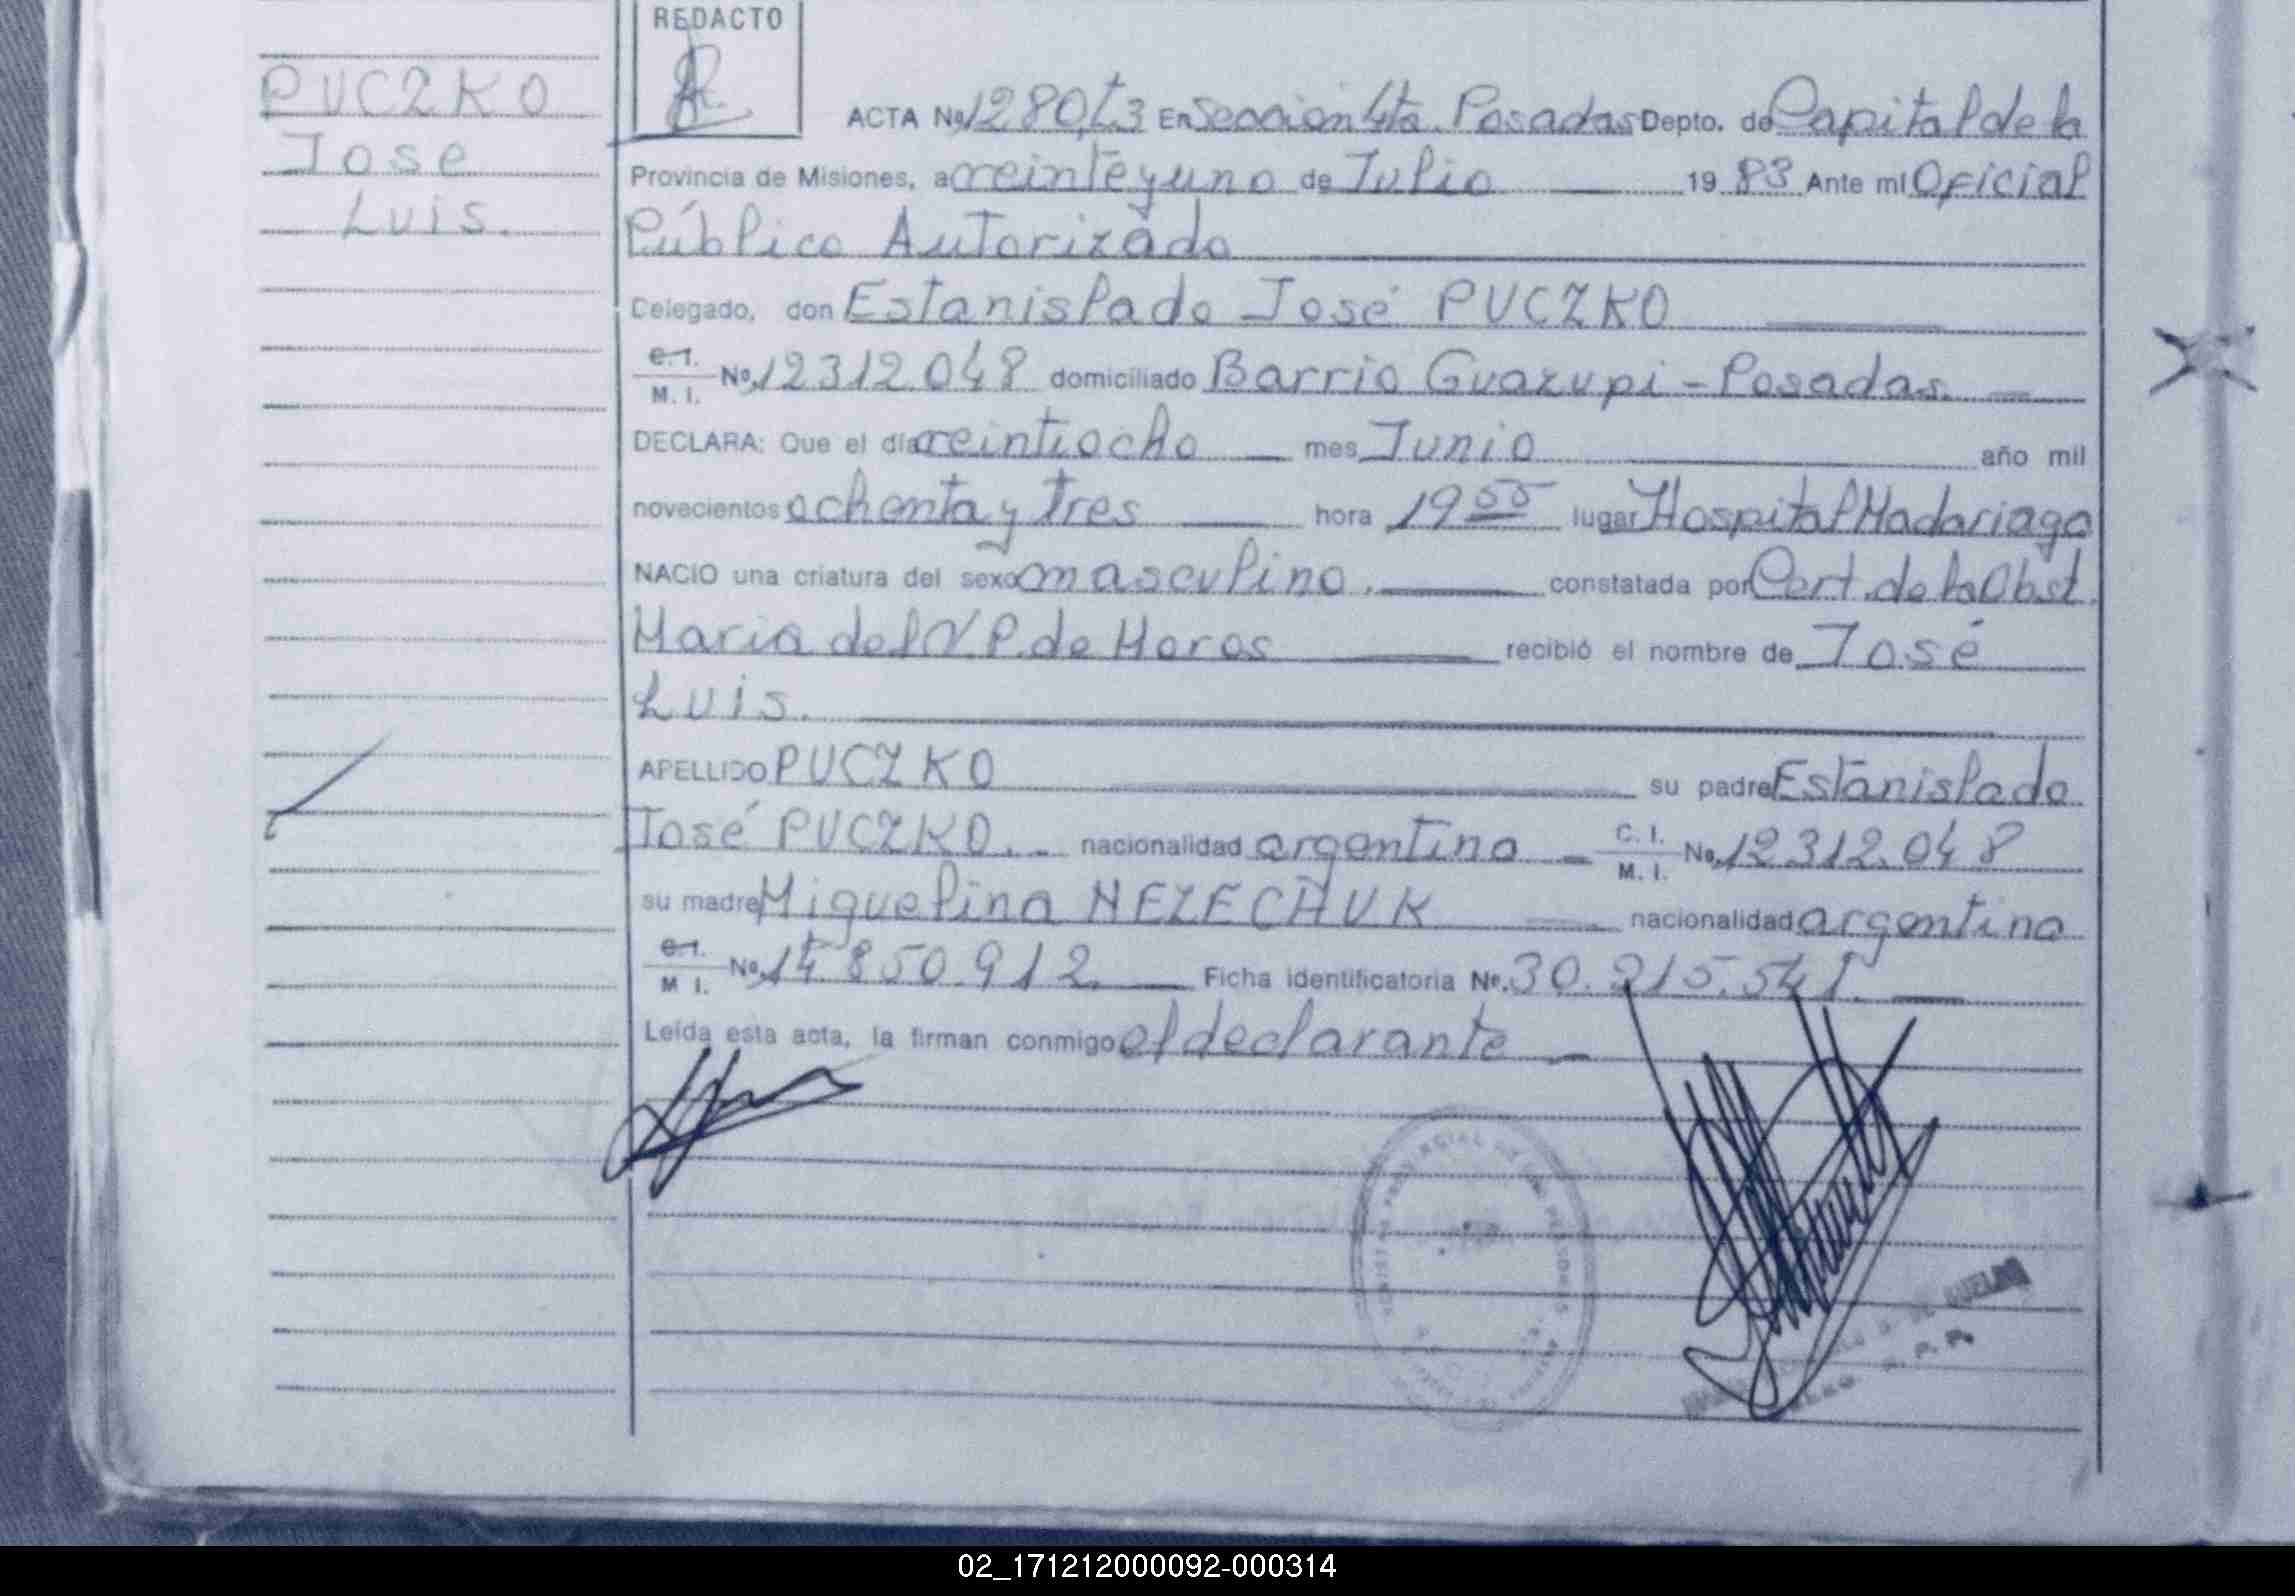 REDACTO
PUCZKO
Jose
Luis.
ACTA Nº 1280, t3 En Sección 4ta. Posadas Depto. de Capital de la
Provincia de Misiones, a veintey uno de Julio 19 83 Ante mi Oficial
Público Autorizado
Delegado, don Estanislado José PUCZKO
C.I. M.I. Nº 12312.048 domiciliado Barrio Guazupi - Posadas.
DECLARA: Que el día veintiocho mes Junio año mil
novecientos ochenta y tres hora 19 55 lugar Hospital Madariaga
NACIO una criatura del sexo masculino. constatada por Cert. de la Obst.
Maria del V. P. de Moros recibió el nombre de José
Luis.
APELLIDO PUCZKO su padre Estanislado
José PUCZKO. nacionalidad argentino C.I. M.I. Nº 12312.048
su madre Miguelina NEZECHUK nacionalidad argentina
C.I. M.I. Nº 14.850.912 Ficha identificatoria Nº. 30.215.541.
Leída esta acta, la firman conmigo el declarante
02_171212000092-000314